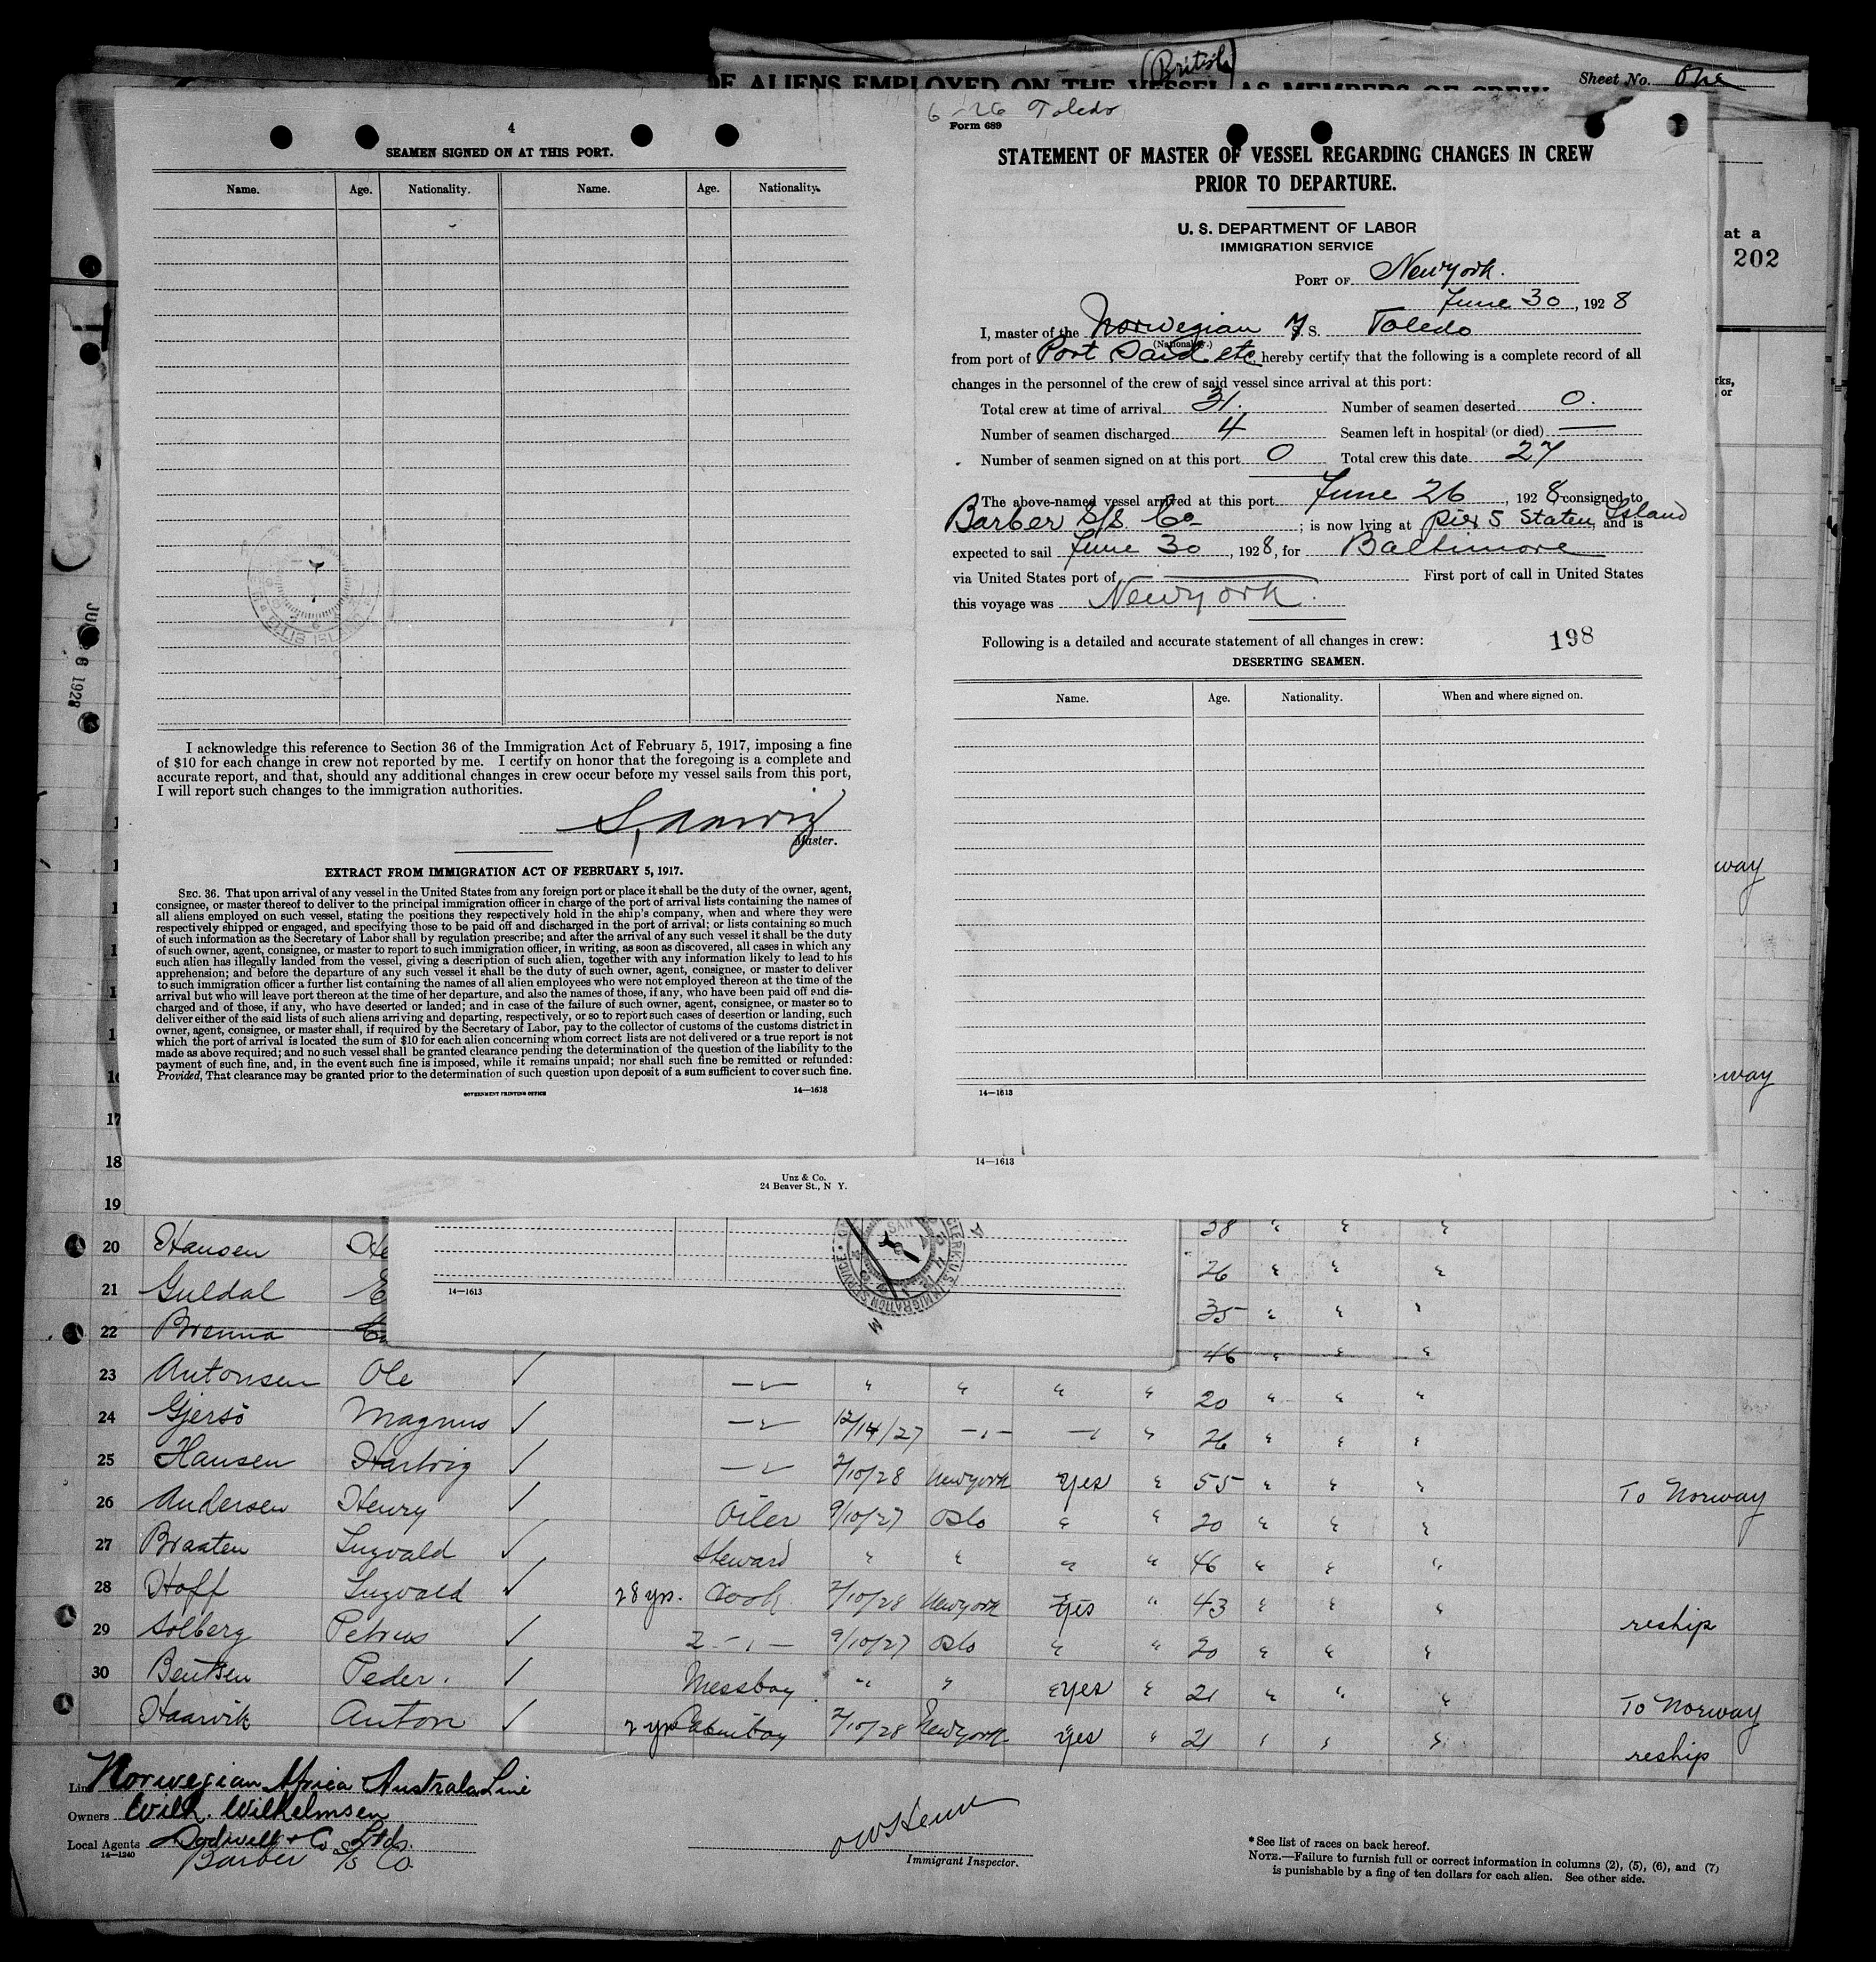 (British)
OF ALIENS EMPLOYED ON THE VESSEL AS MEMBERS OF CREW
Sheet No. One
at a
202
rks,
or
way
way
JU 26 1928
4
SEAMEN SIGNED ON AT THIS PORT.
Name. Age. Nationality. Name. Age. Nationality.
I acknowledge this reference to Section 36 of the Immigration Act of February 5, 1917, imposing a fine
of $10 for each change in crew not reported by me. I certify on honor that the foregoing is a complete and
accurate report, and that, should any additional changes in crew occur before my vessel sails from this port,
I will report such changes to the immigration authorities.
Master.
EXTRACT FROM IMMIGRATION ACT OF FEBRUARY 5, 1917.
SEC. 36. That upon arrival of any vessel in the United States from any foreign port or place it shall be the duty of the owner, agent,
consignee, or master thereof to deliver to the principal immigration officer in charge of the port of arrival lists containing the names of
all aliens employed on such vessel, stating the positions they respectively hold in the ship's company, when and where they were
respectively shipped or engaged, and specifying those to be paid off and discharged in the port of arrival; or lists containing so much
of such information as the Secretary of Labor shall by regulation prescribe; and after the arrival of any such vessel it shall be the duty
of such owner, agent, consignee, or master to report to such immigration officer, in writing, as soon as discovered, all cases in which any
such alien has illegally landed from the vessel, giving a description of such alien, together with any information likely to lead to his
apprehension; and before the departure of any such vessel it shall be the duty of such owner, agent, consignee, or master to deliver
to such immigration officer a further list containing the names of all alien employees who were not employed thereon at the time of the
arrival but who will leave port thereon at the time of her departure, and also the names of those, if any, who have been paid off and dis-
charged and of those, if any, who have deserted or landed; and in case of the failure of such owner, agent, consignee, or master so to
deliver either of the said lists of such aliens arriving and departing, respectively, or so to report such cases of desertion or landing, such
owner, agent, consignee, or master shall, if required by the Secretary of Labor, pay to the collector of customs of the customs district in
which the port of arrival is located the sum of $10 for each alien concerning whom correct lists are not delivered or a true report is not
made as above required; and no such vessel shall be granted clearance pending the determination of the question of the liability to the
payment of such fine, and, in the event such fine is imposed, while it remains unpaid; nor shall such fine be remitted or refunded:
Provided, That clearance may be granted prior to the determination of such question upon deposit of a sum sufficient to cover such fine.
GOVERNMENT PRINTING OFFICE 14—1613
6-26 Toledo
Form 689
STATEMENT OF MASTER OF VESSEL REGARDING CHANGES IN CREW
PRIOR TO DEPARTURE.
U. S. DEPARTMENT OF LABOR
IMMIGRATION SERVICE
PORT OF Newyork.
June 30, 1928
I, master of the Norwegian M. S. Toledo
(Nationality.)
from port of Port Said etc hereby certify that the following is a complete record of all
changes in the personnel of the crew of said vessel since arrival at this port:
Total crew at time of arrival 31. Number of seamen deserted 0.
Number of seamen discharged 4 Seamen left in hospital (or died) —
Number of seamen signed on at this port 0 Total crew this date 27
The above-named vessel arrived at this port June 26, 1928 consigned to
Barber S/S Co ; is now lying at pier 5 Staten Island and is
expected to sail June 30, 1928, for Baltimore
via United States port of — First port of call in United States
this voyage was Newyork.
Following is a detailed and accurate statement of all changes in crew: 198
DESERTING SEAMEN.
Name. Age. Nationality. When and where signed on.
14—1613
14—1613
Unz & Co.
24 Beaver St., N Y.
14—1613
17
18
19
38 " " "
20 Hansen He 26 " " "
21 Guldal E 35 " " "
22 Brenna 46 " " "
23 Antonsen Ole ✓ " " " " 20 " " "
24 Gjersö Magnus ✓ 12/14/27 " 26 " " "
25 Hansen Hartvig ✓ 2/10/28 Newyork Yes " 55 " " " To Norway
26 Andersen Henry ✓ Oiler 9/10/27 Oslo " " 20 " " "
27 Braaten Ingvald ✓ Steward " " " " 46 " " "
28 Hoff Ingvald ✓ 28 yrs. Cook 2/10/28 Newyork Yes " 43 " " " reship
29 Solberg Petrus ✓ 2 -,- 9/10/27 Oslo " " 20 " " "
30 Bentsen Peder. ✓ Messboy " " yes " 21 " " " To Norway
Haarvik Anton ✓ 2 yrs Cabinboy 2/10/28 Newyork yes " 21 " " " reship
Line Norwegian Africa Australa Line
Owners Wilh. Wilhelmsen
Local Agents Dodwell & Co Ltds.
14—1240
Barber S/S Co.
Immigrant Inspector.
* See list of races on back hereof.
NOTE.—Failure to furnish full or correct information in columns (2), (5), (6), and (7)
is punishable by a fine of ten dollars for each alien. See other side.